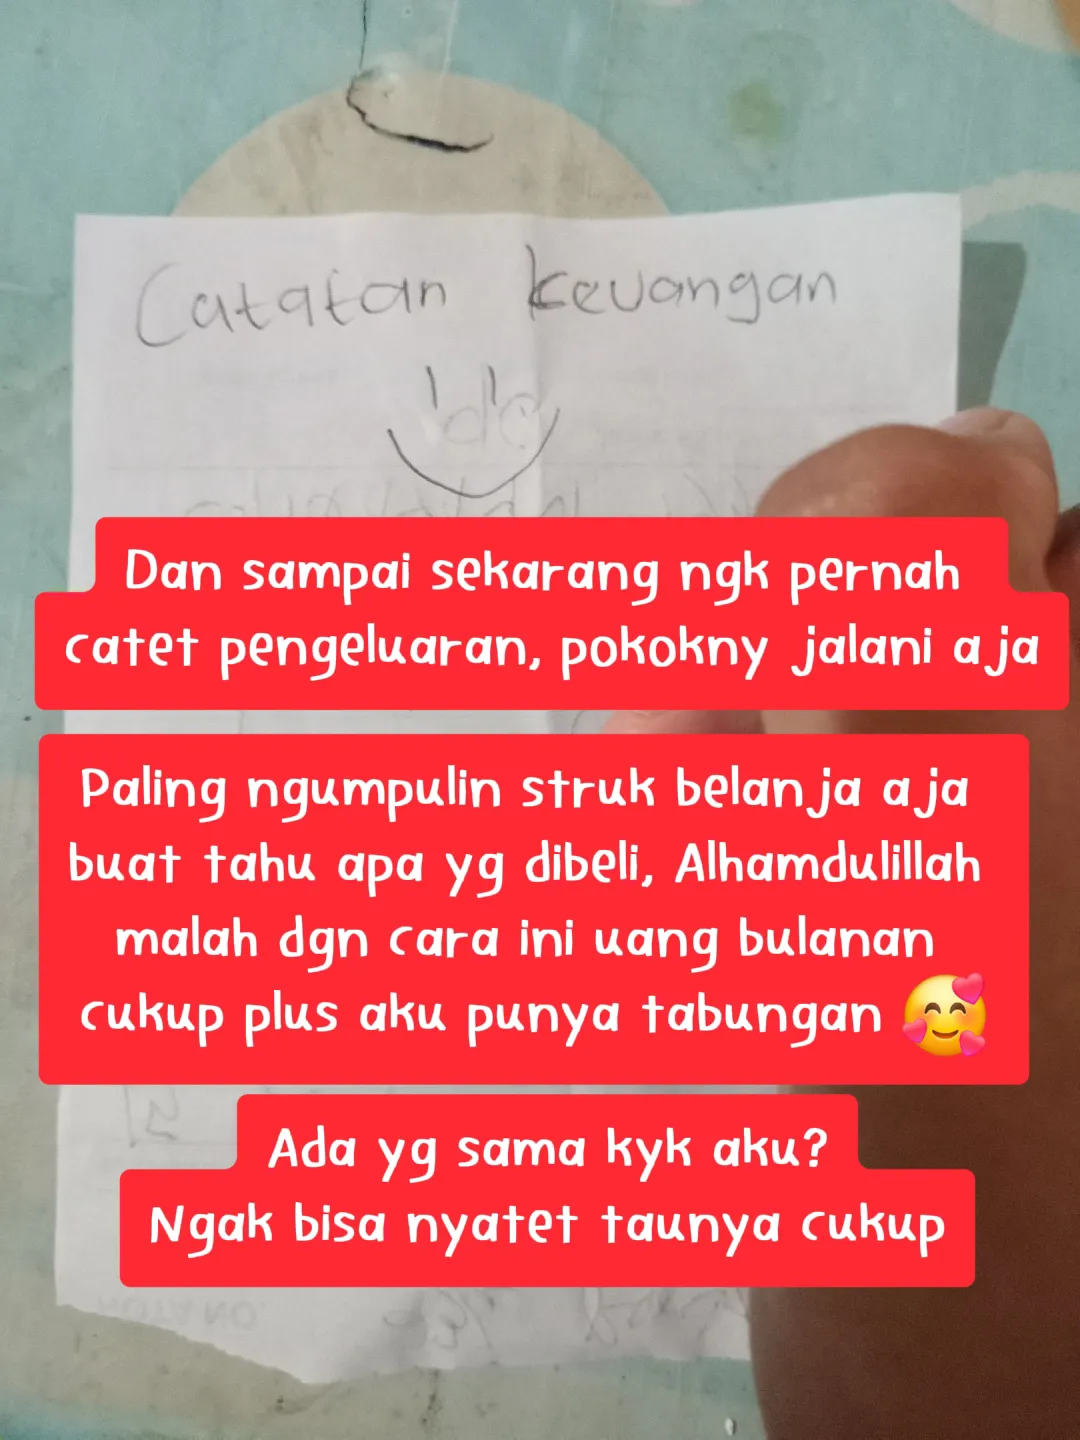 Catatan keuangan
Dan sampai sekarang ngk pernah
catet pengeluaran, pokokny jalani aja
Paling ngumpulin struk belanja aja
buat tahu apa yg dibeli, Alhamdulillah
malah dgn cara ini uang bulanan
cukup plus aku punya tabungan 🥰
Ada yg sama kyk aku?
Ngak bisa nyatet taunya cukup